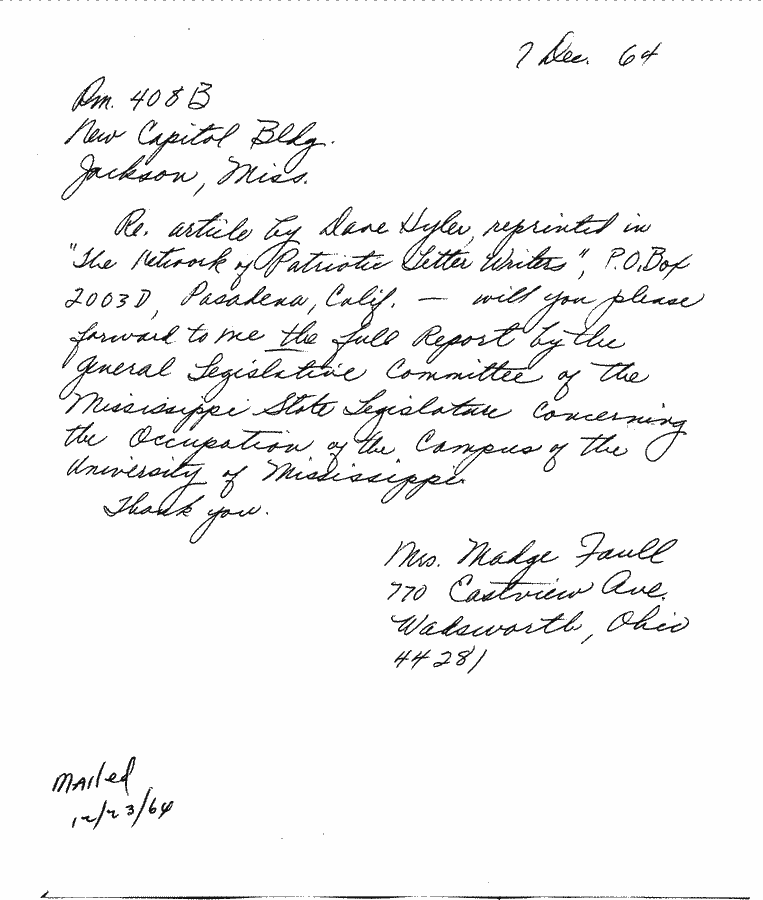 7 Dec. 64
Rm. 408B
New Capitol Bldg.
Jackson, Miss.
Re. article by Dane Hyler, reprinted in
"The Network of Patriotic Letter Writers", P.O. Box
2003D, Pasadena, Calif. — will you please
forward to me the full Report by the
General Legislative Committee of the
Mississippi State Legislature concerning
the Occupation of the Campus of the
University of Mississippi.
Thank you.
Mrs. Madge Faull
770 Eastview Ave.
Wadsworth, Ohio
44281
Mailed
12/23/64